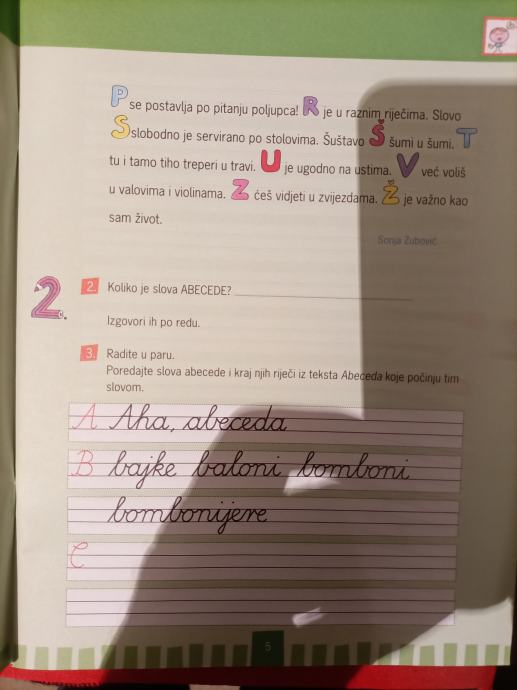 P se postavlja po pitanju poljupca! R je u raznim riječima. Slovo
S slobodno je servirano po stolovima. Šuštavo Š šumi u šumi. T
tu i tamo tiho treperi u travi. U je ugodno na ustima. V već voliš
u valovima i violinama. Z ćeš vidjeti u zvijezdama. Ž je važno kao
sam život.
Sonja Zubović
2.
2. Koliko je slova ABECEDE?
Izgovori ih po redu.
3. Radite u paru.
Poredajte slova abecede i kraj njih riječi iz teksta Abeceda koje počinju tim
slovom.
A Aha, abeceda
B bajke baloni bomboni
bombonijere
C
5